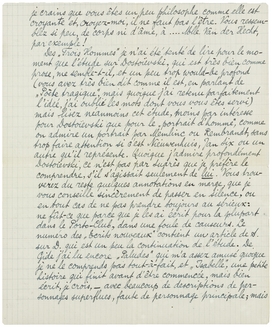 je crains que vous êtes un peu philosophe comme elle est
croyante et, croyez-moi, il ne faut pas l'être. Vous ressem-
blez si peu, de corps ni d'âme, à ... Mlle Van der Hecht,
par exemple!
Des "Trois Hommes" je n'ai été tenté de lire pour le mo-
ment que l'étude sur Dostoïewski, qui est très bien comme
prose, me semble-t-il, et un peu trop woulbe-profond
(vous avez très bien dit comme il est, en parlant de
"Poète tragique", mais quoique j'ai retenu parfaitement
l'idée, j'ai oublié les mots dont vous vous êtes servi)
mais lisez néanmoins cet étude, moins par intérêt
pour Dostoïewski que pour le portrait d'homme, comme
on admire un portrait par Memlinc ou Rembrandt, sans
trop faire attention si c'est Nieuwenhuis, Jan Six ou un
autre qu'il représente. Quoique j'admire profondément
Dostoïewski, ce n'est pas par auprès que je préfère le
comprendre, s'il s'agissait seulement de lui. Vous trou-
verez du reste quelques annotations en marge, que je
vous conseille sincèrement de passer en silence, ou
en tout cas de ne pas prendre toujours au sérieux:
ne fût-ce que parce que je les ai écrit pour la plupart
dans le Porto-Club, dans une foule de causeurs. Le
numéro des "Écrits nouveaux" contient un article de A.
sur D. qui est un peu la continuation de l'étude. De
Gide j'ai lu encore "Paludes" qui m'a assez amusé quoique
je ne le comprends pas tout-à-fait, et "Isabelle", une petite
histoire qui finit avant d'être commencée, mais bien
écrit, je crois, — avec beaucoup de descriptions de per-
sonnages superflues, faute de personnage principale; mais